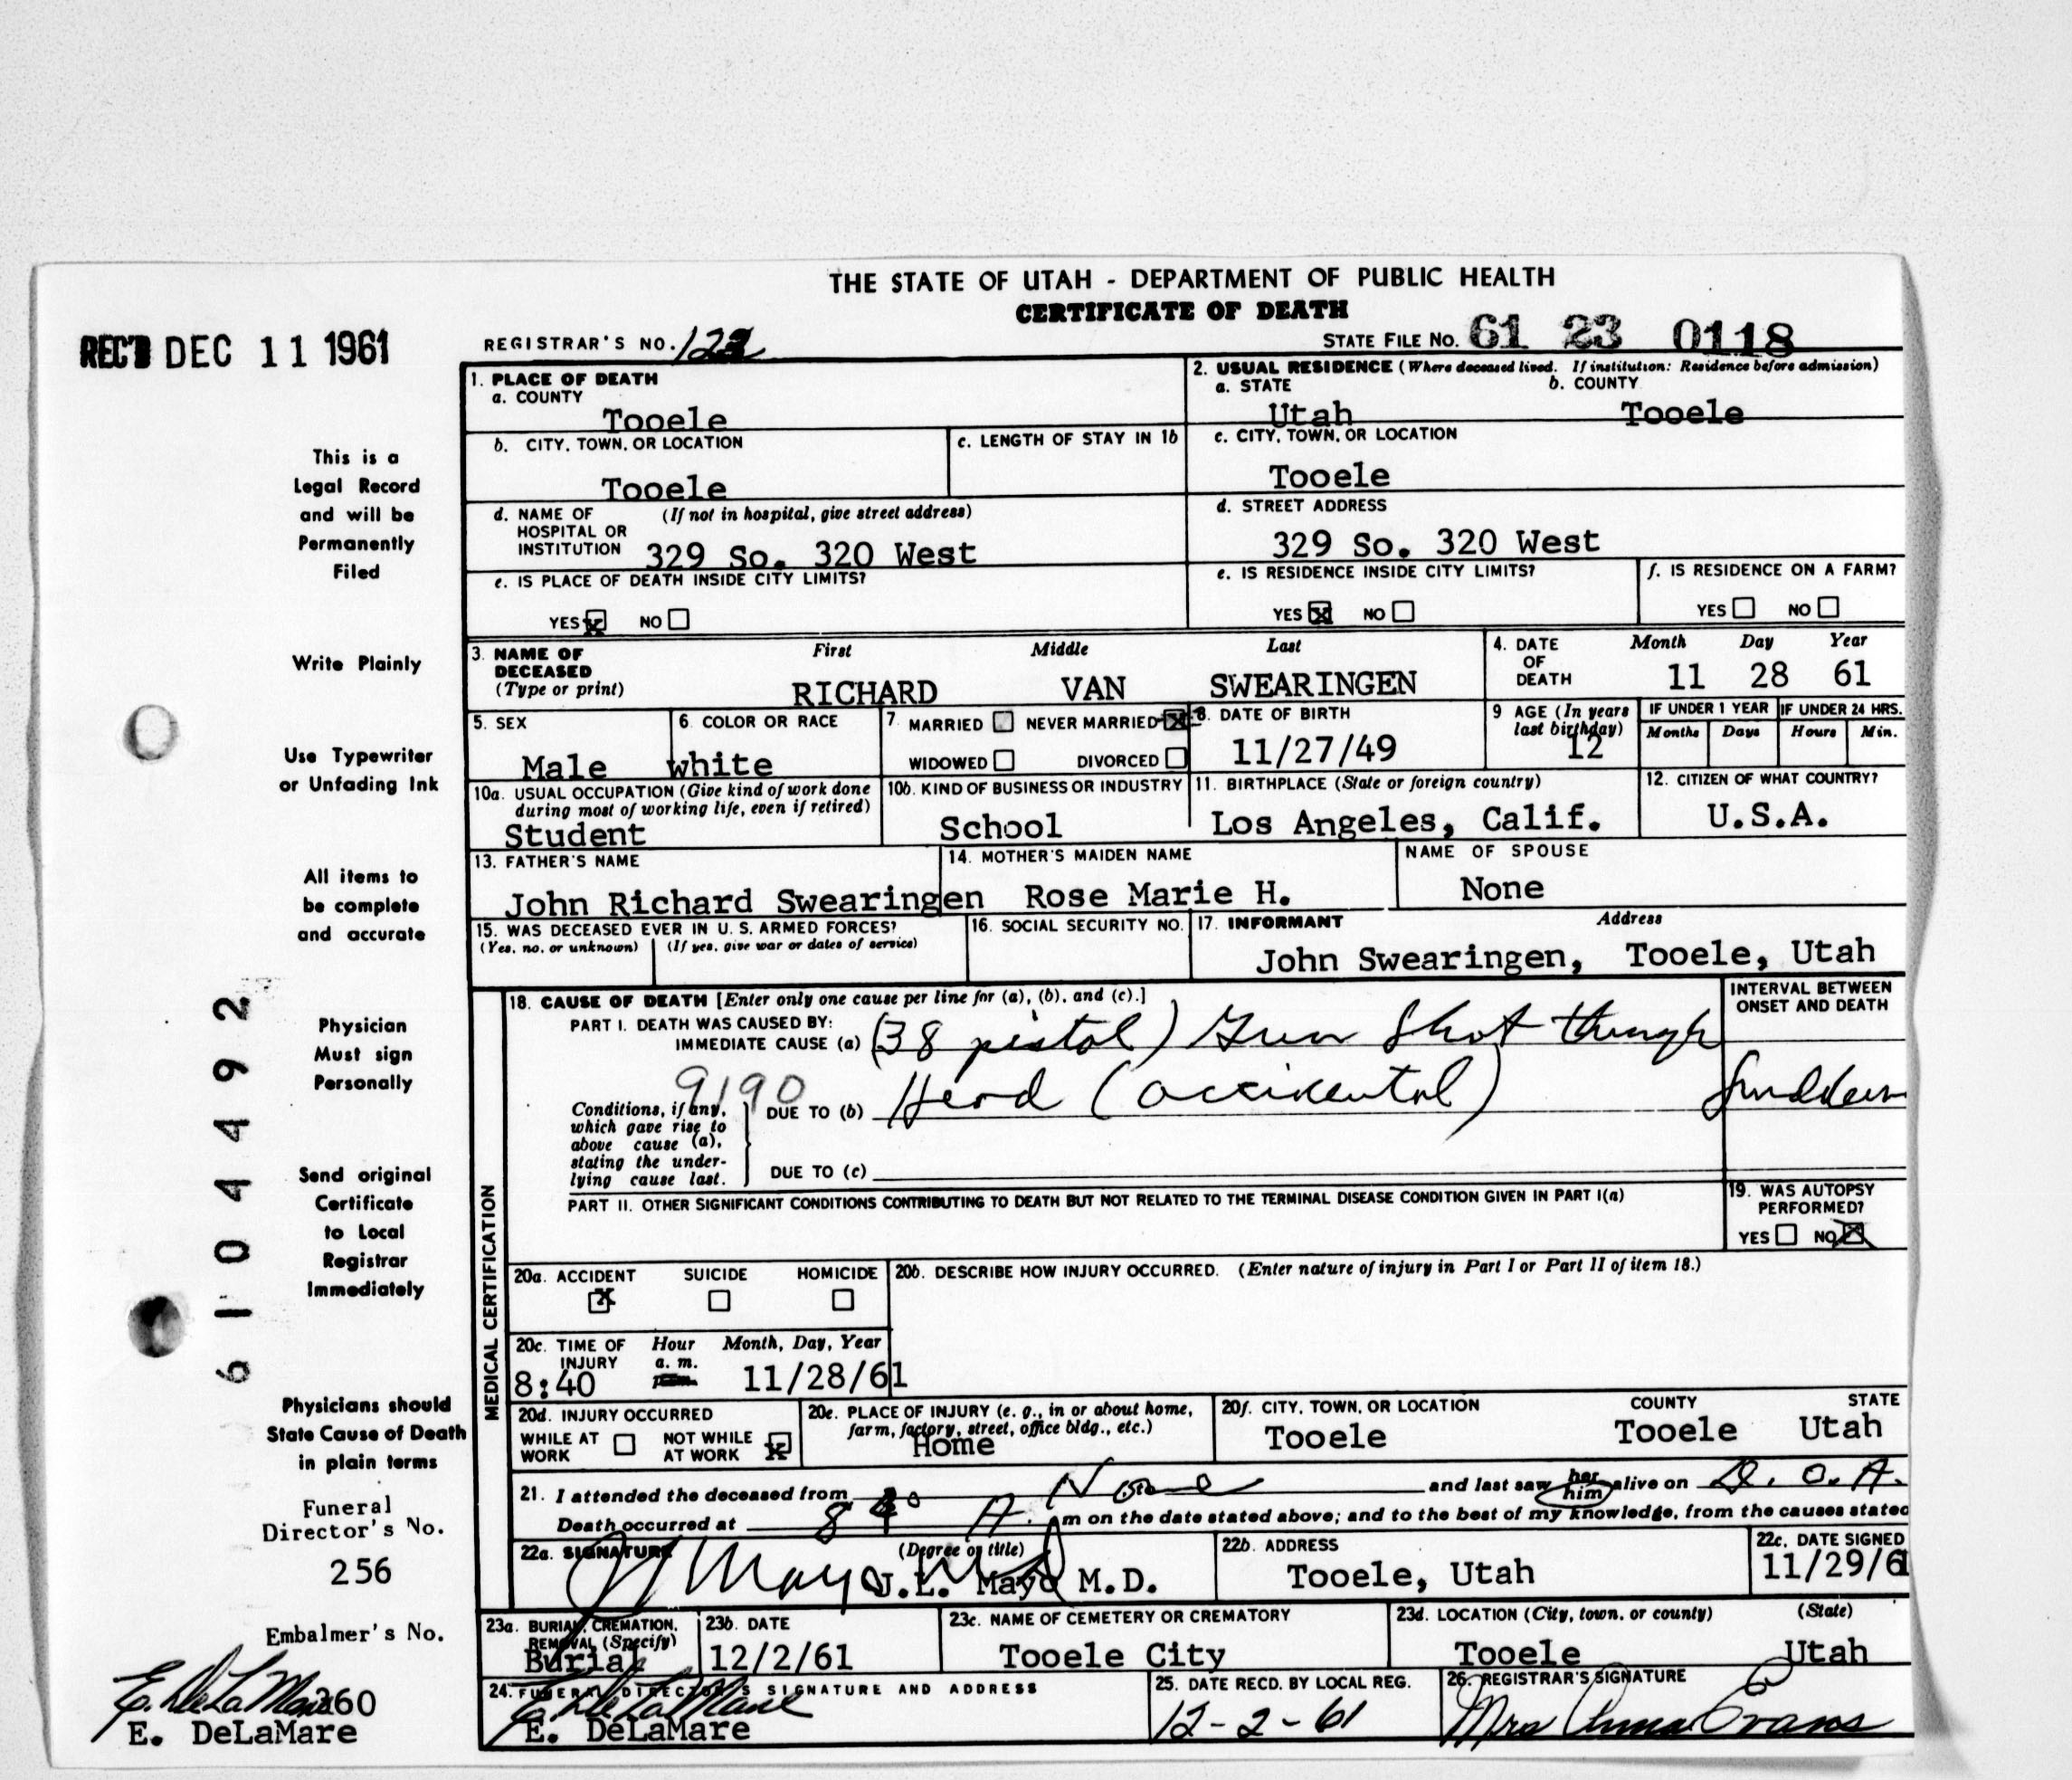 THE STATE OF UTAH - DEPARTMENT OF PUBLIC HEALTH
CERTIFICATE OF DEATH
REC'D DEC 11 1961
REGISTRAR'S NO.
STATE FILE NO. 61 23 0118
1. PLACE OF DEATH
a. COUNTY
Tooele
2. USUAL RESIDENCE (Where deceased lived. If institution: Residence before admission)
a. STATE b. COUNTY
Utah Tooele
b. CITY, TOWN, OR LOCATION
Tooele
c. LENGTH OF STAY IN 1b
c. CITY, TOWN, OR LOCATION
Tooele
d. NAME OF (If not in hospital, give street address)
HOSPITAL OR
INSTITUTION 329 So. 320 West
d. STREET ADDRESS
329 So. 320 West
e. IS PLACE OF DEATH INSIDE CITY LIMITS?
YES NO
e. IS RESIDENCE INSIDE CITY LIMITS?
YES NO
f. IS RESIDENCE ON A FARM?
YES NO
3. NAME OF DECEASED
(Type or print)
First Middle Last
RICHARD VAN SWEARINGEN
4. DATE OF DEATH
Month Day Year
11 28 61
5. SEX
Male
6. COLOR OR RACE
white
7. MARRIED NEVER MARRIED
WIDOWED DIVORCED
8. DATE OF BIRTH
11/27/49
9 AGE (In years
last birthday)
12
IF UNDER 1 YEAR
Months Days
IF UNDER 24 HRS.
Hours Min.
10a. USUAL OCCUPATION (Give kind of work done
during most of working life, even if retired)
Student
10b. KIND OF BUSINESS OR INDUSTRY
School
11. BIRTHPLACE (State or foreign country)
Los Angeles, Calif.
12. CITIZEN OF WHAT COUNTRY?
U.S.A.
13. FATHER'S NAME
John Richard Swearingen
14. MOTHER'S MAIDEN NAME
Rose Marie H.
NAME OF SPOUSE
None
15. WAS DECEASED EVER IN U. S. ARMED FORCES?
(Yes, no, or unknown) (If yes, give war or dates of service)
16. SOCIAL SECURITY NO.
17. INFORMANT Address
John Swearingen, Tooele, Utah
MEDICAL CERTIFICATION
18. CAUSE OF DEATH [Enter only one cause per line for (a), (b), and (c).]
PART I. DEATH WAS CAUSED BY:
IMMEDIATE CAUSE (a) (38 pistol) Gun Shot through
9190
Conditions, if any,
which gave rise to
above cause (a),
stating the under-
lying cause last.
DUE TO (b) Head (accidental)
DUE TO (c)
INTERVAL BETWEEN
ONSET AND DEATH
Sudden
PART II. OTHER SIGNIFICANT CONDITIONS CONTRIBUTING TO DEATH BUT NOT RELATED TO THE TERMINAL DISEASE CONDITION GIVEN IN PART I(a)
19. WAS AUTOPSY
PERFORMED?
YES NO
20a. ACCIDENT SUICIDE HOMICIDE
20b. DESCRIBE HOW INJURY OCCURRED. (Enter nature of injury in Part I or Part II of item 18.)
20c. TIME OF INJURY
Hour Month, Day, Year
a. m.
8:40 11/28/61
20d. INJURY OCCURRED
WHILE AT WORK NOT WHILE AT WORK
20e. PLACE OF INJURY (e. g., in or about home,
farm, factory, street, office bldg., etc.)
Home
20f. CITY, TOWN, OR LOCATION COUNTY STATE
Tooele Tooele Utah
21. I attended the deceased from None and last saw her him alive on D. O. A.
Death occurred at 8 40 A. m on the date stated above; and to the best of my knowledge, from the causes stated
22a. SIGNATURE (Degree or title)
J Mayo MD
J.L. Mayo M.D.
22b. ADDRESS
Tooele, Utah
22c. DATE SIGNED
11/29/61
23a. BURIAL, CREMATION,
REMOVAL (Specify)
Burial
23b. DATE
12/2/61
23c. NAME OF CEMETERY OR CREMATORY
Tooele City
23d. LOCATION (City, town, or county) (State)
Tooele Utah
24. FUNERAL DIRECTOR'S SIGNATURE AND ADDRESS
E. DeLaMare
E. DeLaMare
25. DATE RECD. BY LOCAL REG.
12-2-61
26. REGISTRAR'S SIGNATURE
Mrs Anna Evans
This is a
Legal Record
and will be
Permanently
Filed
Write Plainly
Use Typewriter
or Unfading Ink
All items to
be complete
and accurate
Physician
Must sign
Personally
Send original
Certificate
to Local
Registrar
Immediately
Physicians should
State Cause of Death
in plain terms
Funeral
Director's No.
256
Embalmer's No.
E. DeLaMare 360
E. DeLaMare
6104492